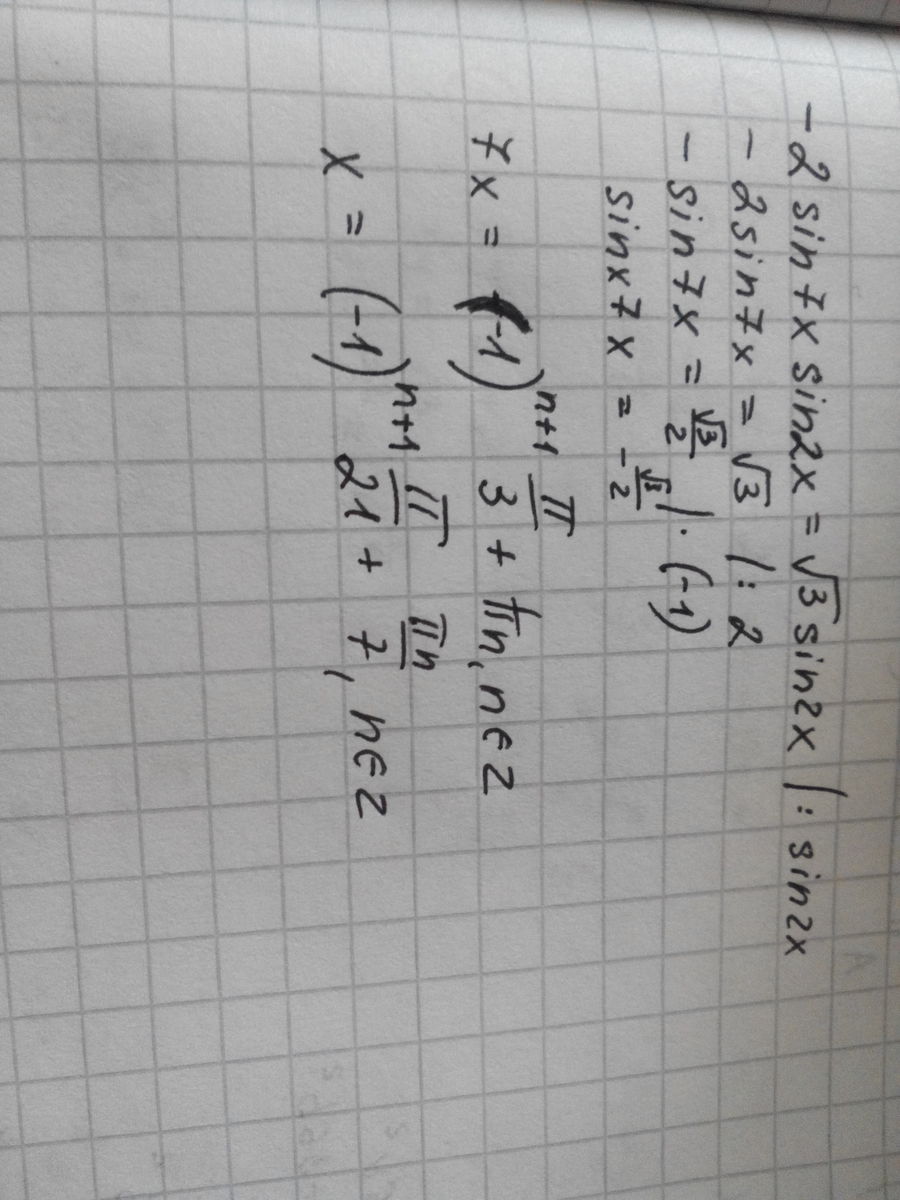 -2 sin 7x sin2x = √3 sin2x |: sin2x
- 2sin 7x = √3 |: 2
- sin 7x = √3/2 |· (-1)
sinx 7x = - √3/2
7x = (-1)^(n+1) π/3 + πn, n∈Z
x = (-1)^(n+1) π/21 + πn/7, n∈Z